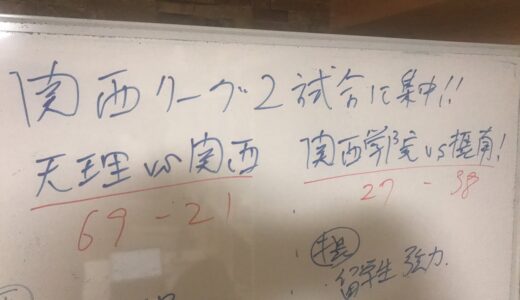 関西リーグ2試合に集中!!
天理 vs 関西
関西学院 vs 摂南!
69-21
27-38
・摂
留学生 強力